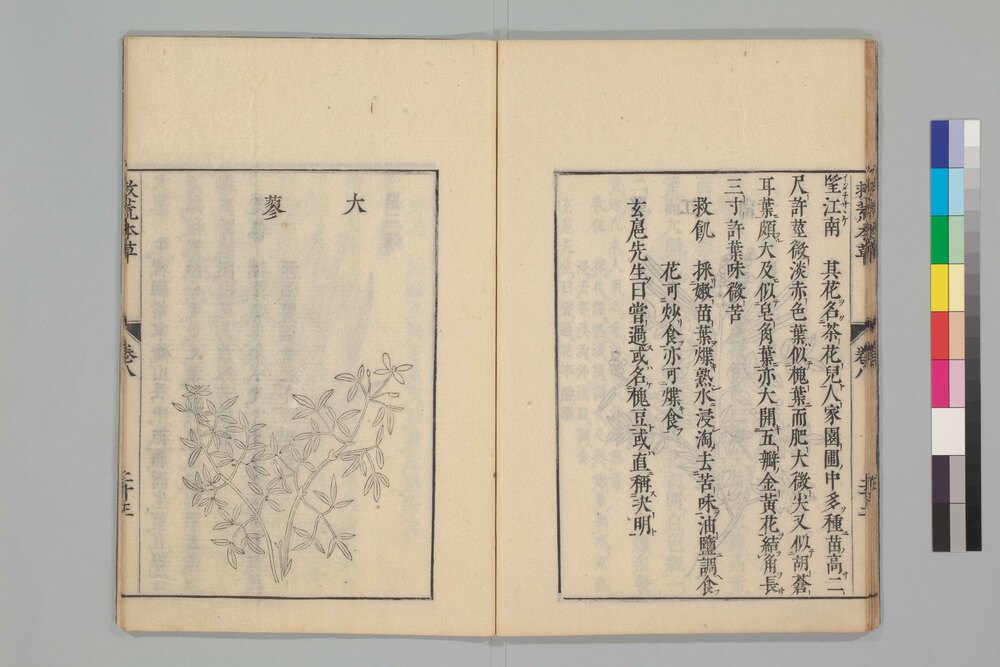 救荒本草
卷八
二十二
望江南　其花名茶花兒人家園圃中多種苗高二
尺許莖微淡赤色葉似槐葉而肥大微尖又似胡蒼
耳葉頗大及似皂角葉亦大開五瓣金黃花結角長
三寸許葉味微苦
救飢　採嫩苗葉煠熟水浸淘去苦味油鹽調食
花可炒食亦可煠食
玄扈先生曰嘗過或名槐豆或直稱决明
大蓼
救荒本草
卷八
二十三